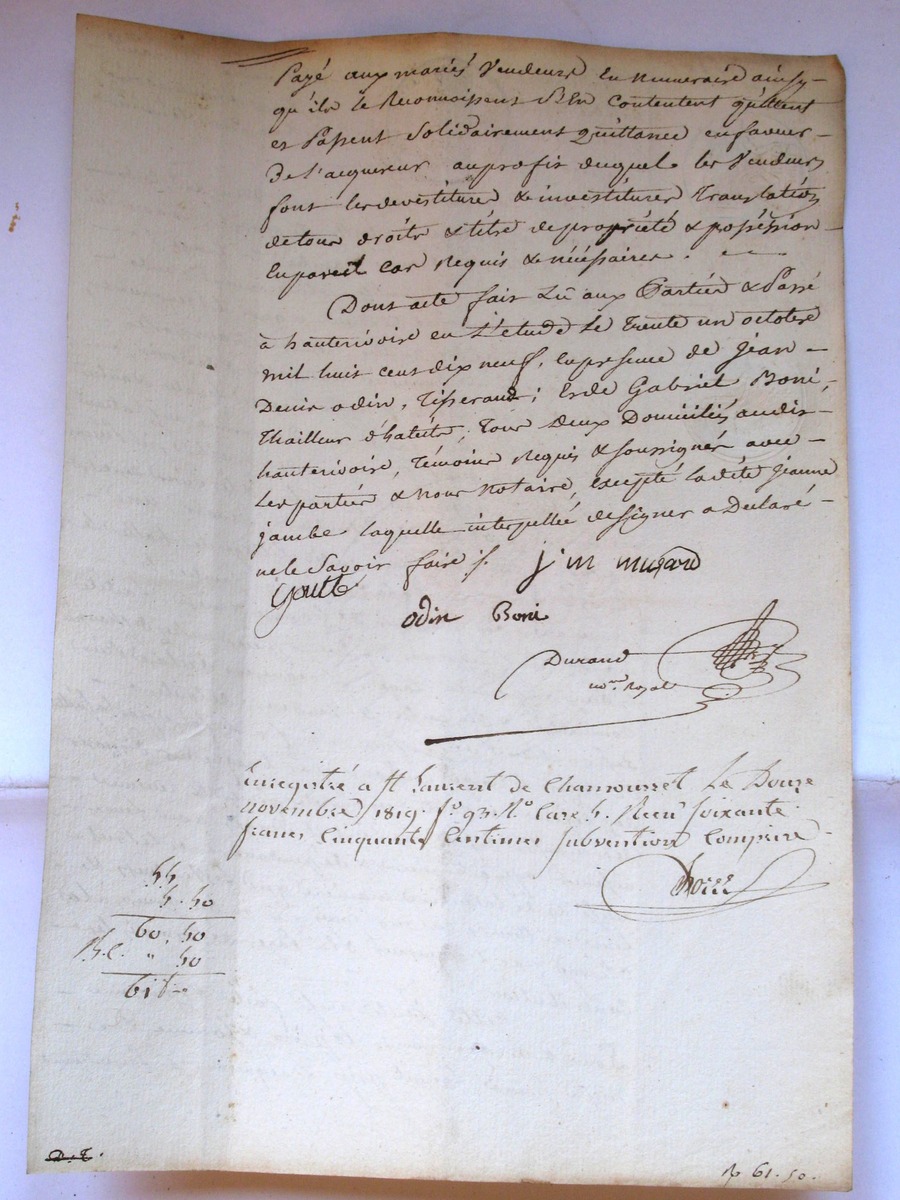 Payé aux mariés Vendeurs en numéraire ainsy
qu'ils le Reconnoissent S'En contentent quittent
et Passent Solidairement Quittance en faveur
de l'acquereur au profit duquel les Vendeurs
font les devestiture & investiture Translation
de tous droits & titre de propriété & posséssion
en pareil cas Requis & nécéssaires.
Dont acte fait Lû aux Partiés & Passé
à hauterivoire en L'etude Le Trente un octobre
mil huit cent dix neuf, en presence de jean
Denis odin, Tisserand; Et de Gabriel Boni,
Thailleur d'habits; Tous Deux Domiciliés audit
hauterivoire, Témoins Requis & soussignés avec
les partiés & Nous Notaire, excepté ladite jeanne
jambe laquelle interpellée de signer a Déclaré
ne le Savoir faire /.
j m musard
Goutte
odin Boni
Durand
no.re Royal
Enregistré a St Laurent de Chamousset Le Douze
novembre 1819. f.o 93. V.o Case 5. Recu soixante
francs Cinquante Centimes subvention Comprise
55
5. 50
60. 50
" 50
61
D. T.
61. 50.